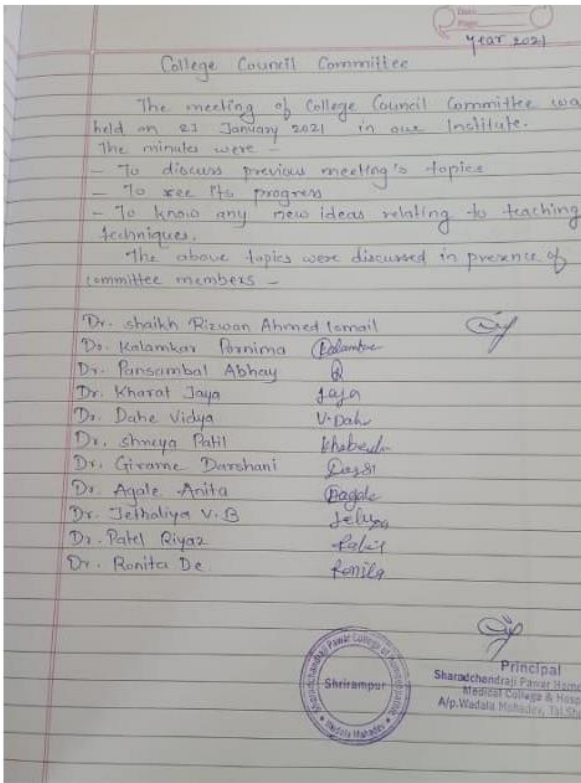 Year 2021
College Council Committee
The meeting of College Council Committee wa
held on 23 January 2021 in our Institute.
The minutes were -
- To discuss previous meeting's topics
- To see its progress
- To know any new ideas relating to teaching
techniques.
The above topics were discussed in presence of
committee members -
Dr. Shaikh Rizwan Ahmed Ismail
Dr. Kalamkar Pornima
Dr. Pansambal Abhay
Dr. Kharat Jaya Jaya
Dr. Dahe Vidya V. Dahe
Dr. Shreya Patil
Dr. Girame Darshani
Dr. Agale Anita
Dr. Jethaliya V.B
Dr. Patel Riyaz
Dr. Ronita De Ronita
Sharadchandraji Pawar College of Homoeopathic
Shrirampur
Wadala Mahadev
Principal
Sharadchandraji Pawar Homo
Medical College & Hosp
A/p.Wadala Mahadev, Tal.Sh